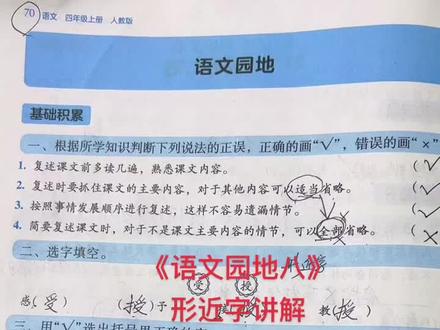 70 语文 四年级上册 人教版
语文园地
基础积累
一、根据所学知识判断下列说法的正误，正确的画“√”，错误的画“×”
1. 复述课文前多读几遍，熟悉课文内容。 (√
2. 复述时要抓住课文的主要内容，对于其他内容可以适当省略。 (√
3. 按照事情发展顺序进行复述，这样不容易遗漏情节。 (√
4. 简要复述课文时，对于不是课文主要内容的情节，可以全部省略。 (×
二、选字填空。
受 授
《语文园地八》
感(受) (授)予 教(授)
形近字讲解